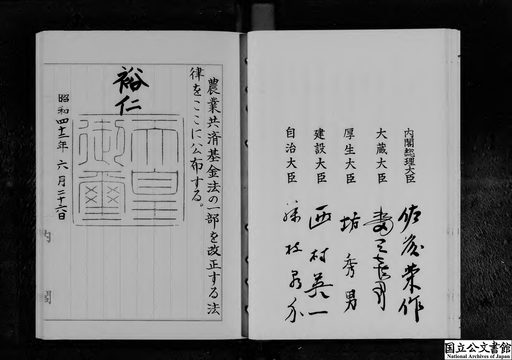 内閣総理大臣 佐藤栄作
大蔵大臣 水田三喜男
厚生大臣 坊秀男
建設大臣 西村英一
自治大臣 藤枝泉介
農業共済基金法の一部を改正する法
律をここに公布する。
裕仁
天皇御璽
昭和四十二年六月二十六日
内閣
国立公文書館
National Archives of Japan